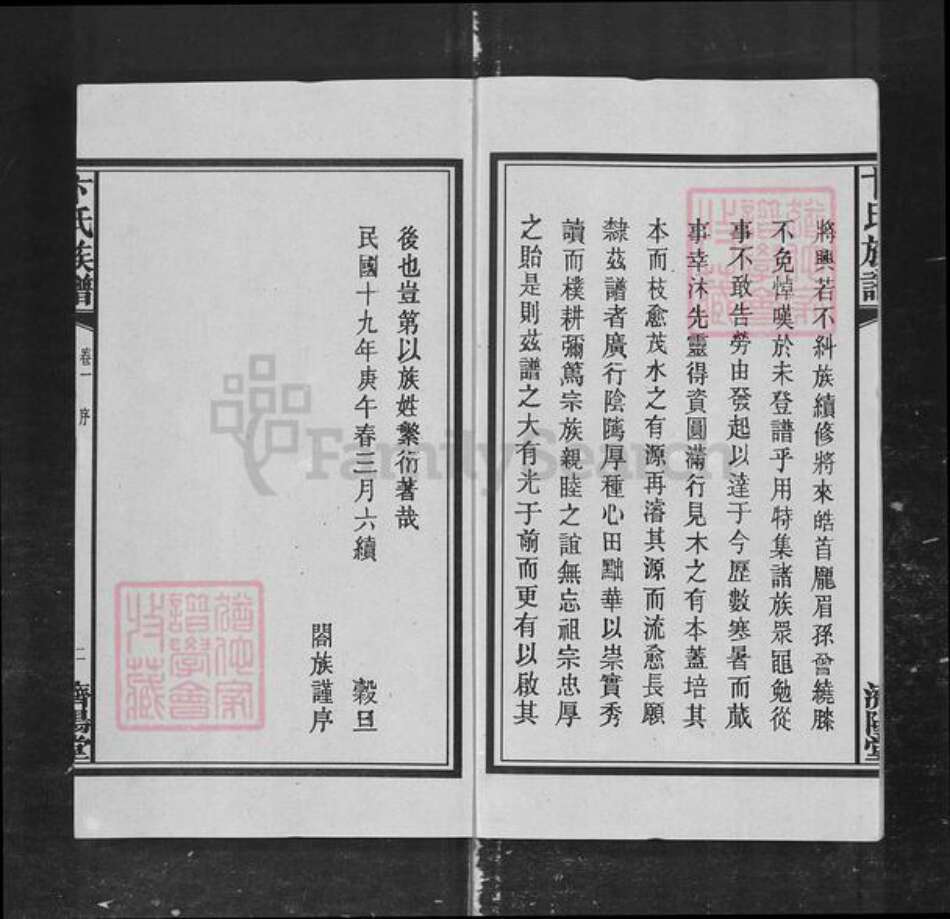 將興若不糾族續修將來皓首龐眉孫曾繞膝
不免悼嘆於未登譜乎用特集諸族眾黽勉從
事不敢告勞由發起以達于今歷數寒暑而蕆
事幸沐先靈得資圓滿行見木之有本蓋培其
本而枝愈茂水之有源再濬其源而流愈長願
隸茲譜者廣行陰隲厚種心田黜華以崇實秀
讀而樸耕彌篤宗族親睦之誼無忘祖宗忠厚
之貽是則茲譜之大有光于前而更有以啟其
後也豈第以族姓繁衍著哉
民國十九年庚午春三月六續 穀旦
闔族謹序
卞氏族譜 卷一 序 二 濟陽堂
FamilySearch